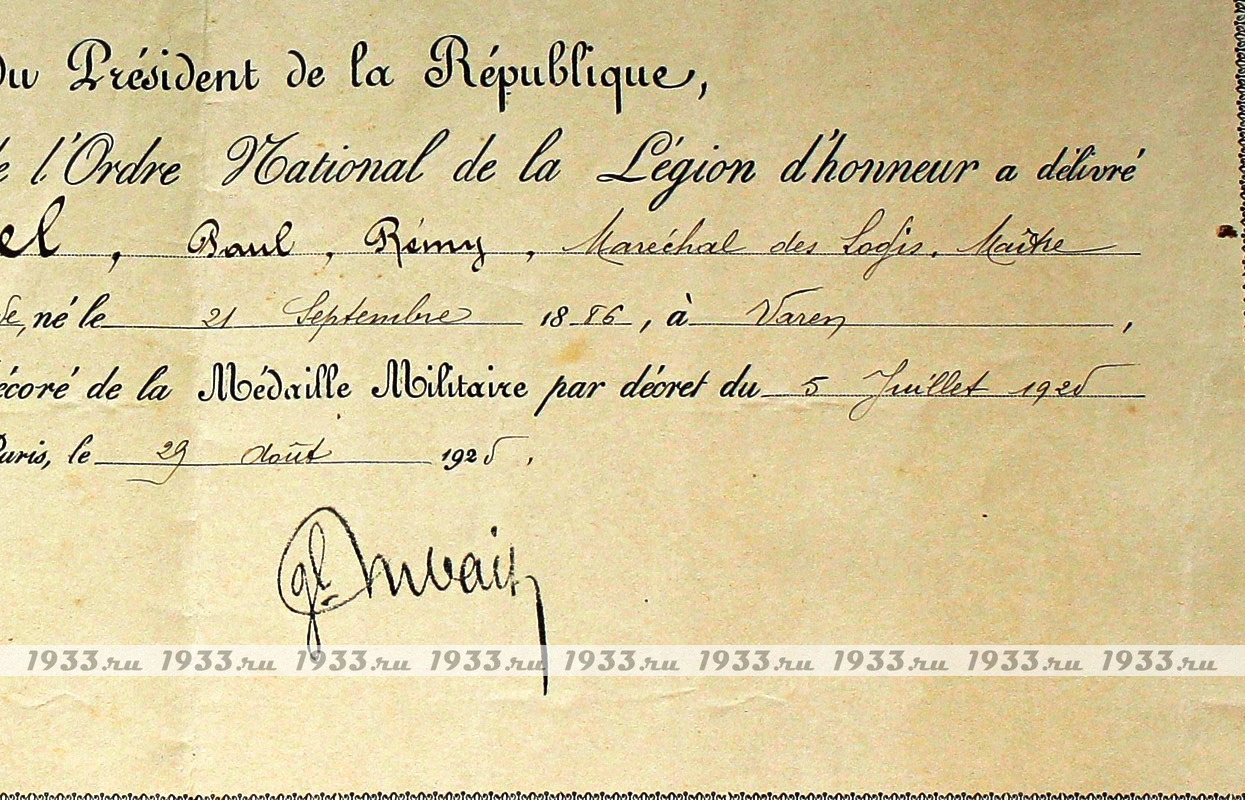 du Président de la République,
de l'Ordre National de la Légion d'honneur a délivré
el, Paul, Rémy, Maréchal des Logis. Maître
né le 21 Septembre 1886, à Varen,
écoré de la Médaille Militaire par décret du 5 Juillet 1925
Paris, le 29 août 1925.
gl Dubail
1933.ru 1933.ru 1933.ru 1933.ru 1933.ru 1933.ru 1933.ru 1933.ru 1933.ru